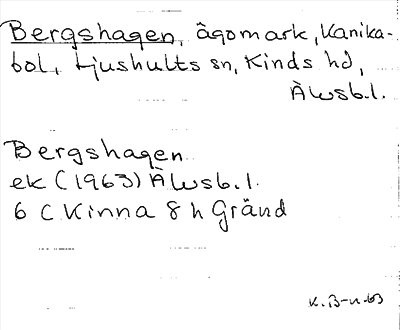 Bergshagen, ägomark, Kanika-
bol, Ljushults sn, Kinds hd,
Älvsb.l.
Bergshagen
ek (1963) Älvsb.l.
6 C Kinna 8 h Gränd
K. B-n -63